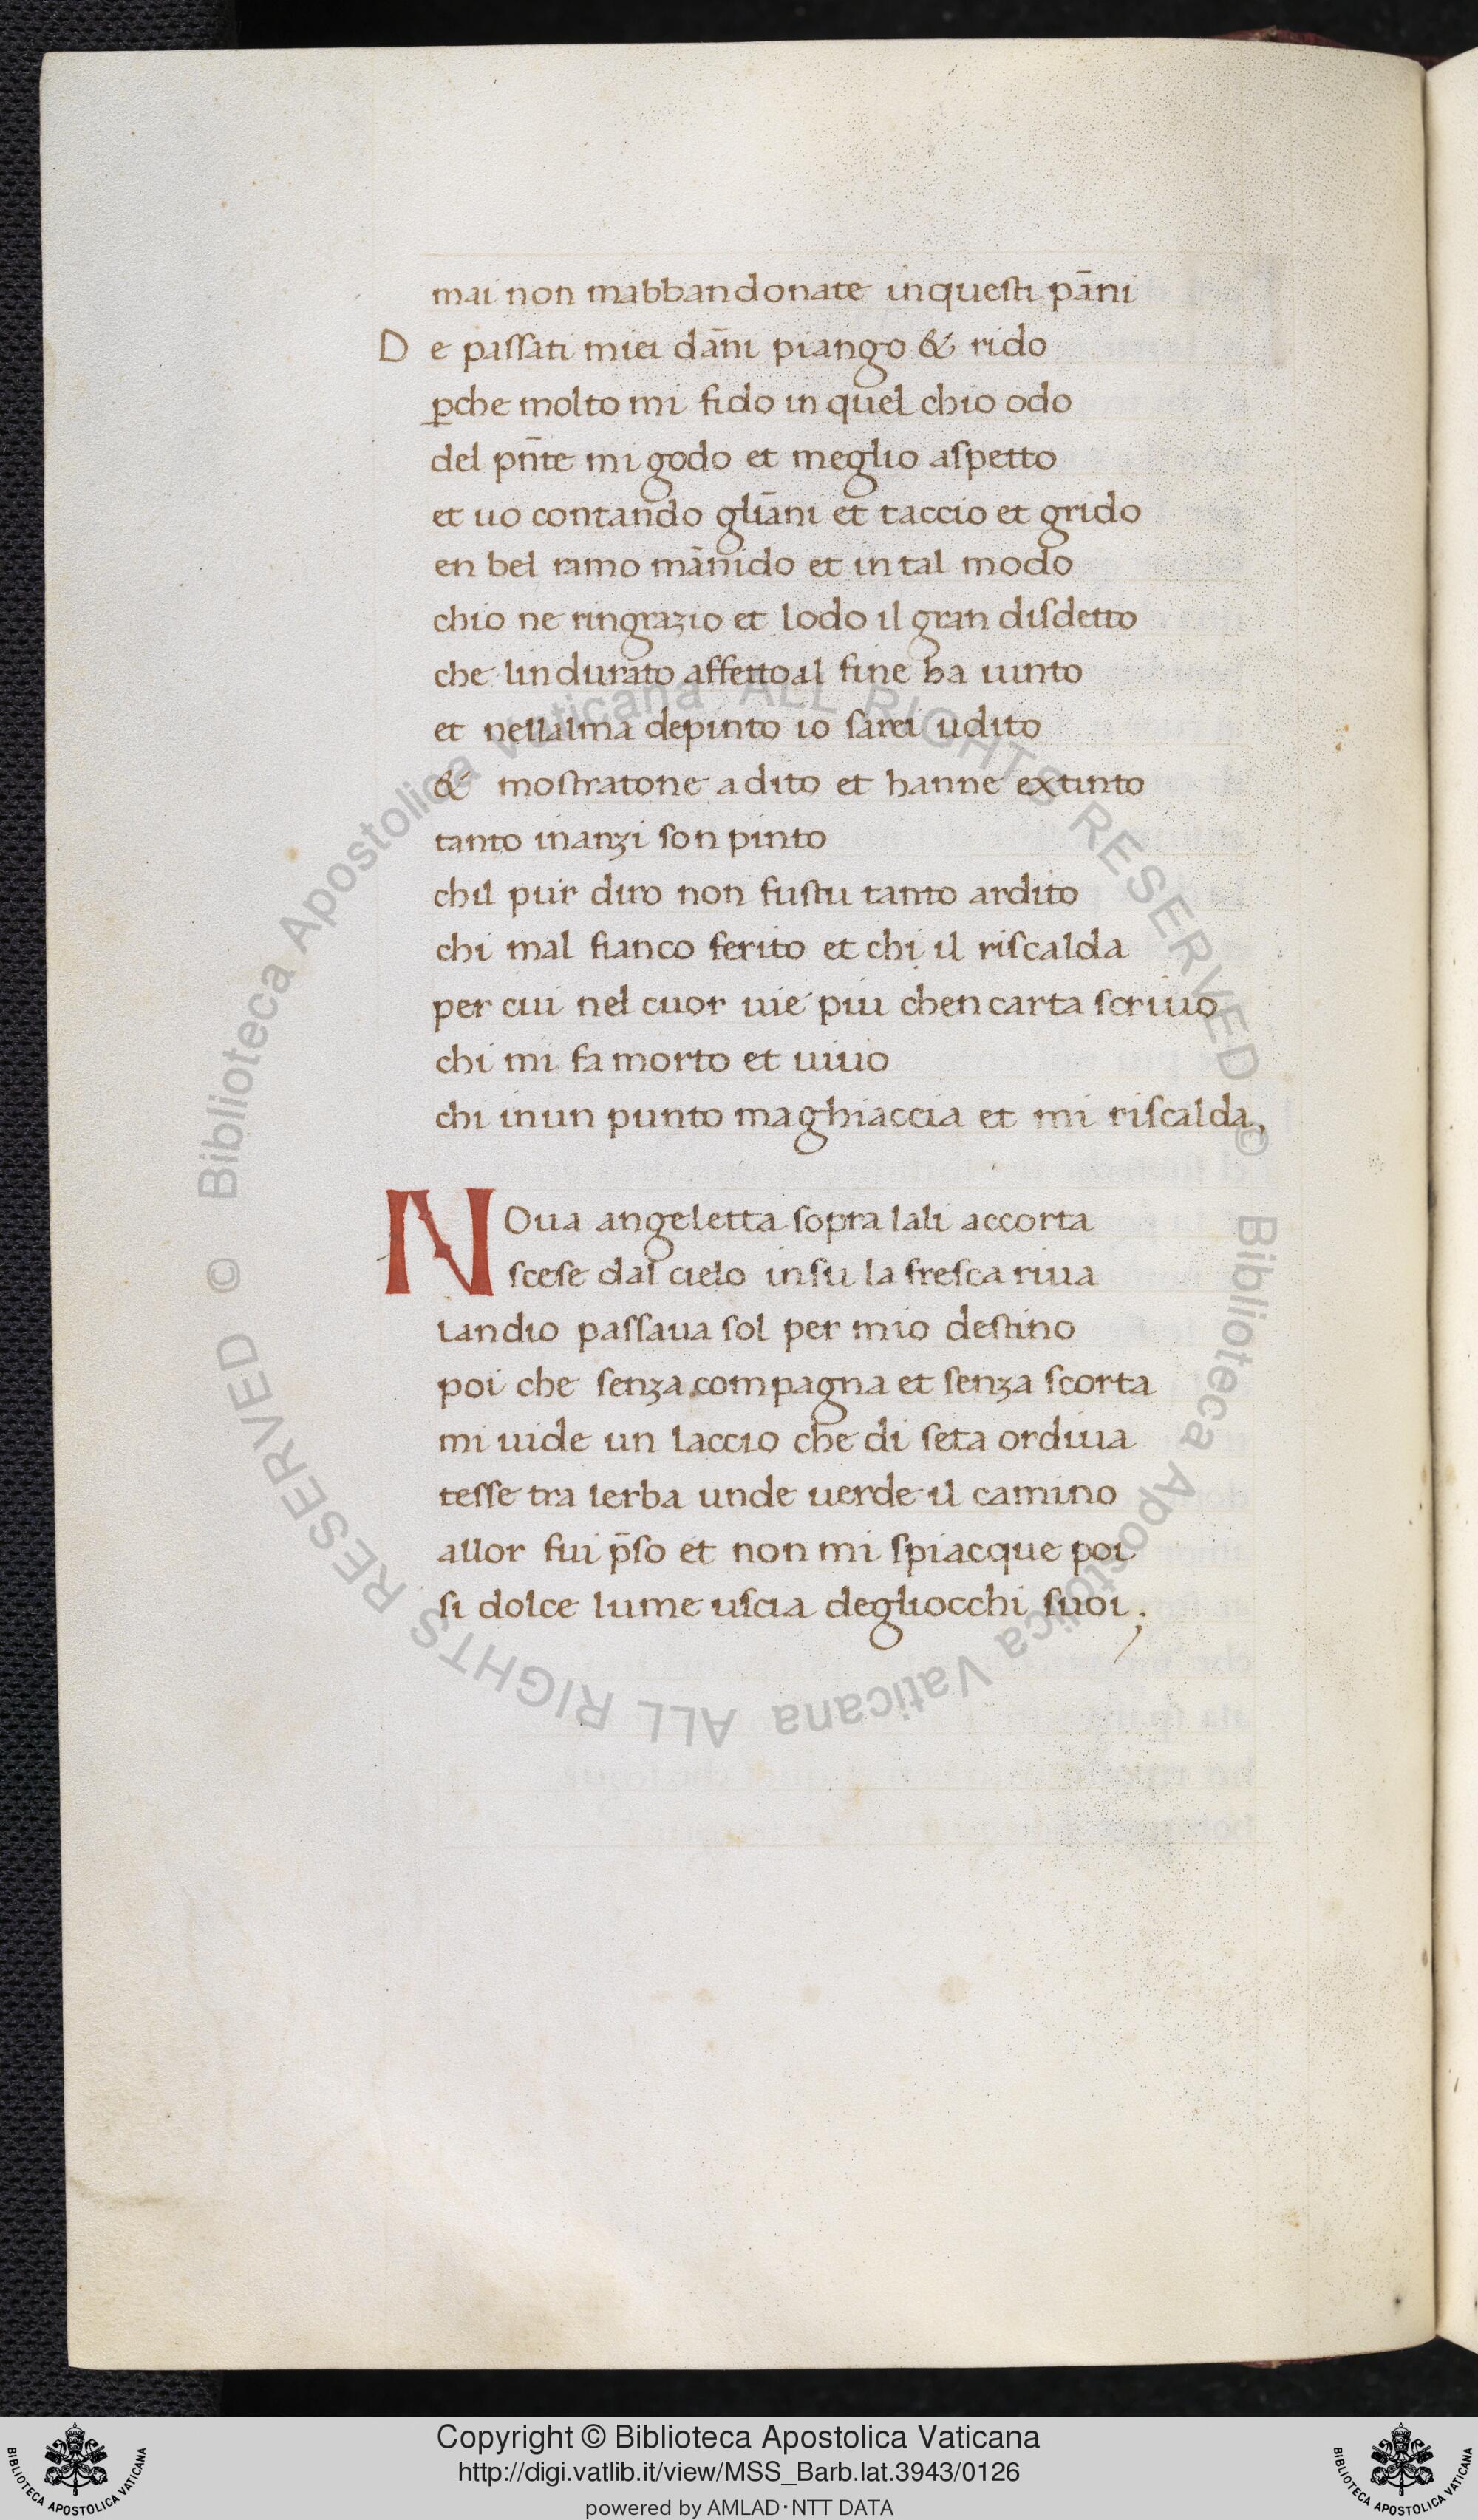 mai non mabbandonate inquesti pāni
De passati miei dāni piango & rido
ꝑche molto mi fido in quel chio odo
del pn̄te mi godo et meglio aspetto
et uo contando gliāni et taccio et grido
en bel ramo mānido et in tal modo
chio ne ringrazio et lodo il gran disdetto
che lindurato affetto al fine ha uinto
et nellalma depinto io sarei udito
& mostratone a dito et hanne extinto
tanto inanzi son pinto
chil pur diro non fustu tanto ardito
chi mal fianco ferito et chi il riscalda
per cui nel cuor uie piu chen carta scriuo
chi mi fa morto et uiuo
chi inun punto maghiaccia et mi riscalda.
NOua angeletta sopra lali accorta
scese dal cielo insu la fresca riua
landio passaua sol per mio destino
poi che senza compagna et senza scorta
mi uide un laccio che di seta ordiua
tesse tra lerba unde uerde il camino
allor fui p̄so et non mi spiacque poi
si dolce lume uscia degliocchi suoi;
© Biblioteca Apostolica Vaticana ALL RIGHTS RESERVED
© Biblioteca Apostolica Vaticana ALL RIGHTS RESERVED
Copyright © Biblioteca Apostolica Vaticana
http://digi.vatlib.it/view/MSS_Barb.lat.3943/0126
powered by AMLAD·NTT DATA
BIBLIOTECA APOSTOLICA VATICANA
BIBLIOTECA APOSTOLICA VATICANA